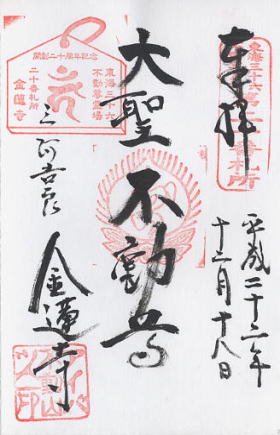 奉拝
東海三十六
第二十番札所
平成二十二年
十二月十八日
大聖不動尊
開創二十周年記念
東海三十六
不動尊霊場
二十番札所
金蓮寺
三河吉良
金蓮寺